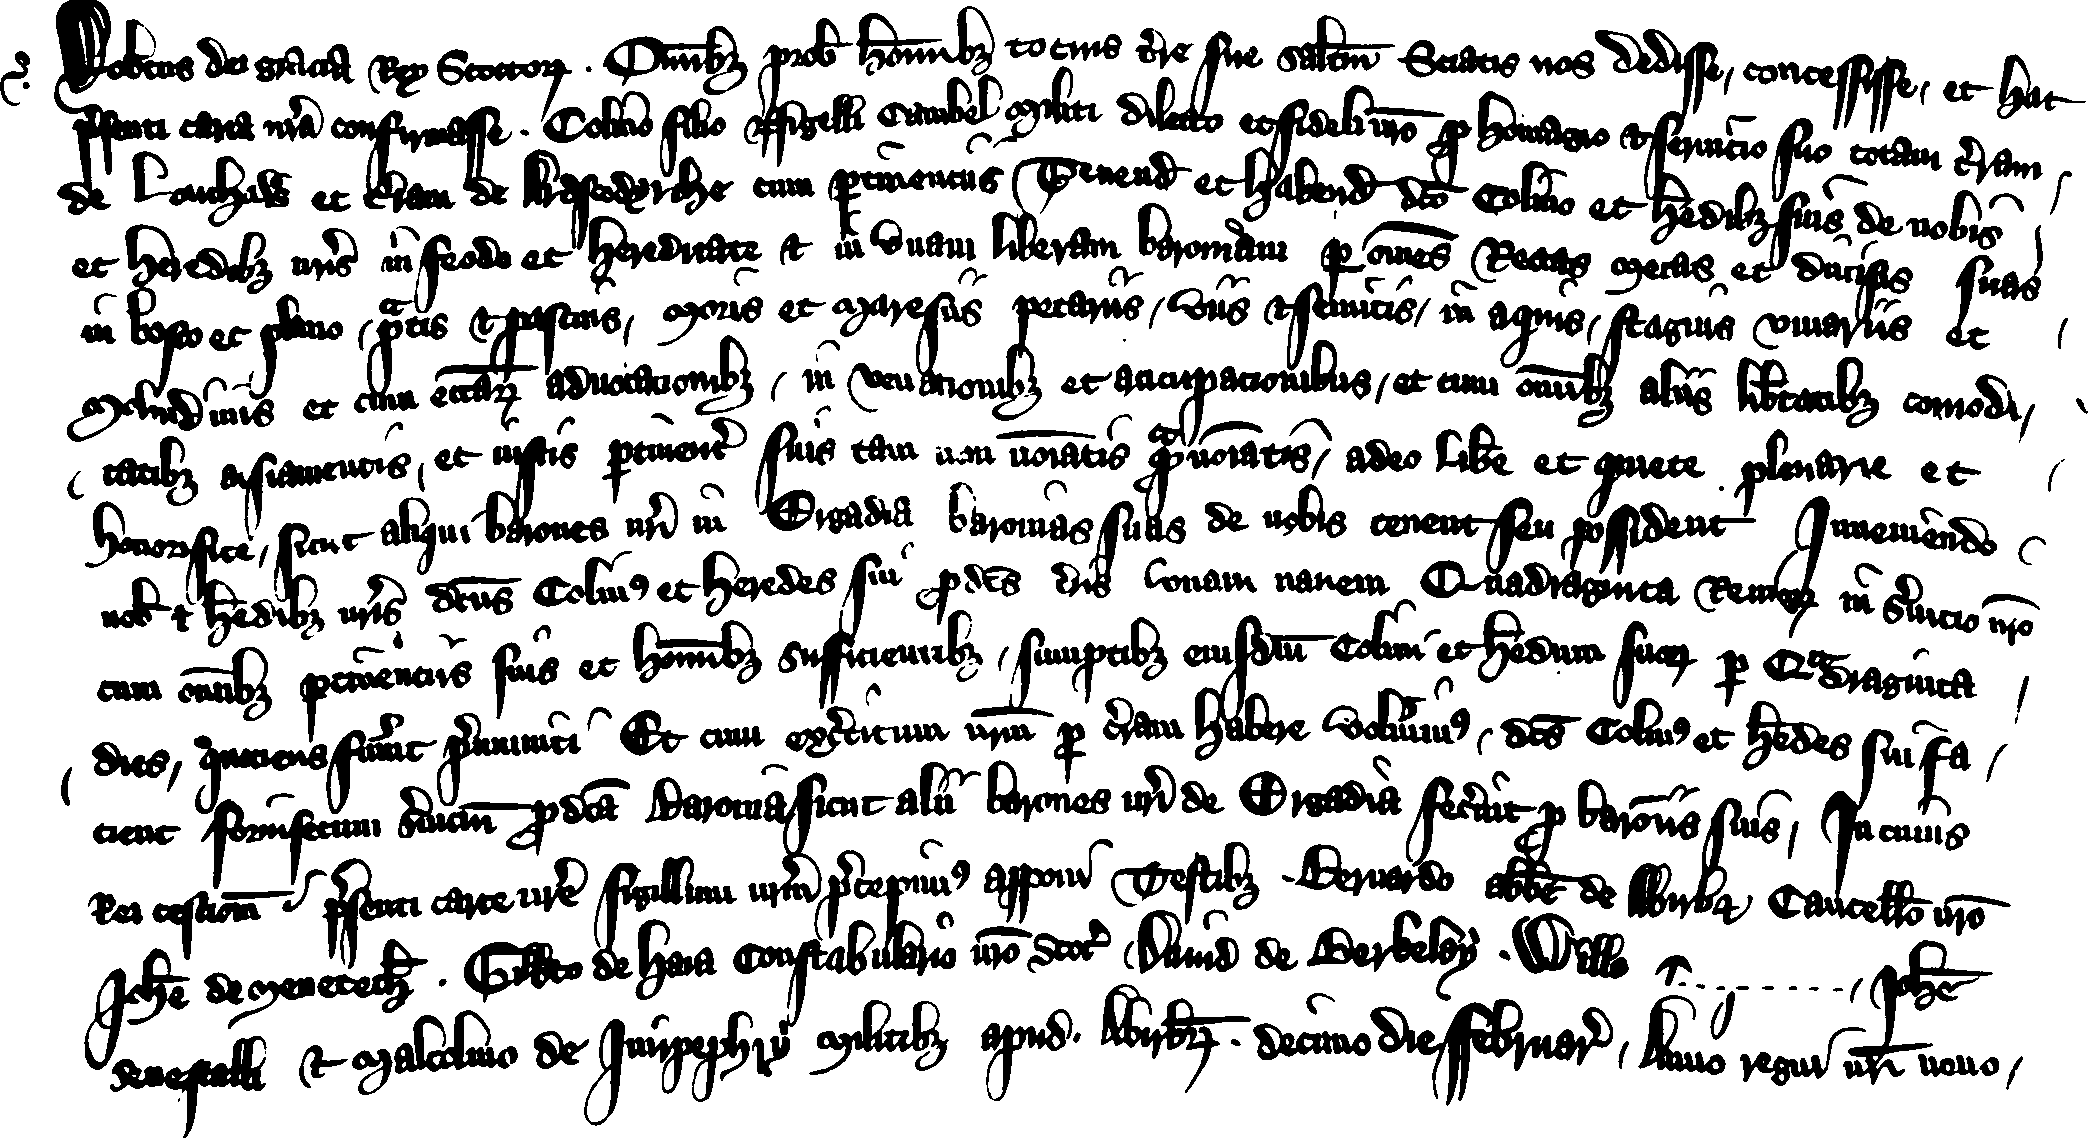 Robertus dei gracia Rex Scottorꝝ. Om̄ibꝫ prob̄ hom̄ibꝫ tocius t̄re sue salt̄m Sciatis nos dedisse, concessisse, et hac
p̄senti carta nr̄a confirmasse. Colino filio Nigelli Cambel militi dilecto et fideli nr̄o ꝓ homagio et seruicio suo totam t̄ram
de Louchaw et t̄ram de Ardscodyrche cum ꝑtinenciis Tenend̄ et habend̄ dc̄o Colino et h̄edibꝫ suis de nobis
et heredibꝫ nr̄is in feodo et hereditate et in vnam liberam baroniam ꝑ om̄es Rectas metas et diuisas suas
in bosco et plano, pratis et pascuis, moris et maresiis petariis, viis et semitis, in aquis, stagnis viuariis et
Molendinis et cum ecc̄arꝝ aduocacionibꝫ, in venacionibꝫ et aucupacionibus, et cum om̄ibꝫ aliis lib̄tatibꝫ comodi,
tatibꝫ aisiamentis, et iustis ꝑtinenc̄ suis tam non no̅iatis qua̅ no̅iatis, adeo lib̄e et quiete plenarie et
honorifice, sicut aliqui barones nr̄i in Ergadia baronias suas de nobis tenent seu possident Inueniendo
nob̄ et h̄edibꝫ nr̄is dc̄us Colinꝰ et heredes sui ꝓ dc̄is t̄ris vnam nauem Quadraginta Remorꝝ in s̄uicio nr̄o
cum om̄ibꝫ ꝑtinenciis suis et hom̄ibꝫ sufficientibꝫ, sumptibꝫ eiusdem Colini et h̄edum suorꝝ ꝑ Quadraginta
dies, quociens fu̅int p̄muniti Et cum exc̄citum nr̄m ꝑ t̄ram habere voluim̅ꝰ, dc̄s Colinꝰ et h̄edes sui fa,
cient forinsecum s̄uiciū ꝓ dc̄a Baronia sicut alii barones nr̄i de Ergadia fec̄int ꝓ baroniis suis, In cuius
Rei testiom̅ p̄senti carte nr̄e sigillum nr̄m p̄cepimꝰ apponi Testibꝫ. Bernardo abb̄e de Abirb̄ Cancell̄o nr̄o
Joh̄e de meneteth̄. Gilb̄to de haia Constabulario nr̄o Scoc̄, Dauid de Berkelay. Will̄o . . . . . . . . , Joh̄e
Senescalli et Malcolmo de Inirpephry militibꝫ apud. Abirbꝝ. decimo die ffebruar̄, Anno regni nr̄i nono,